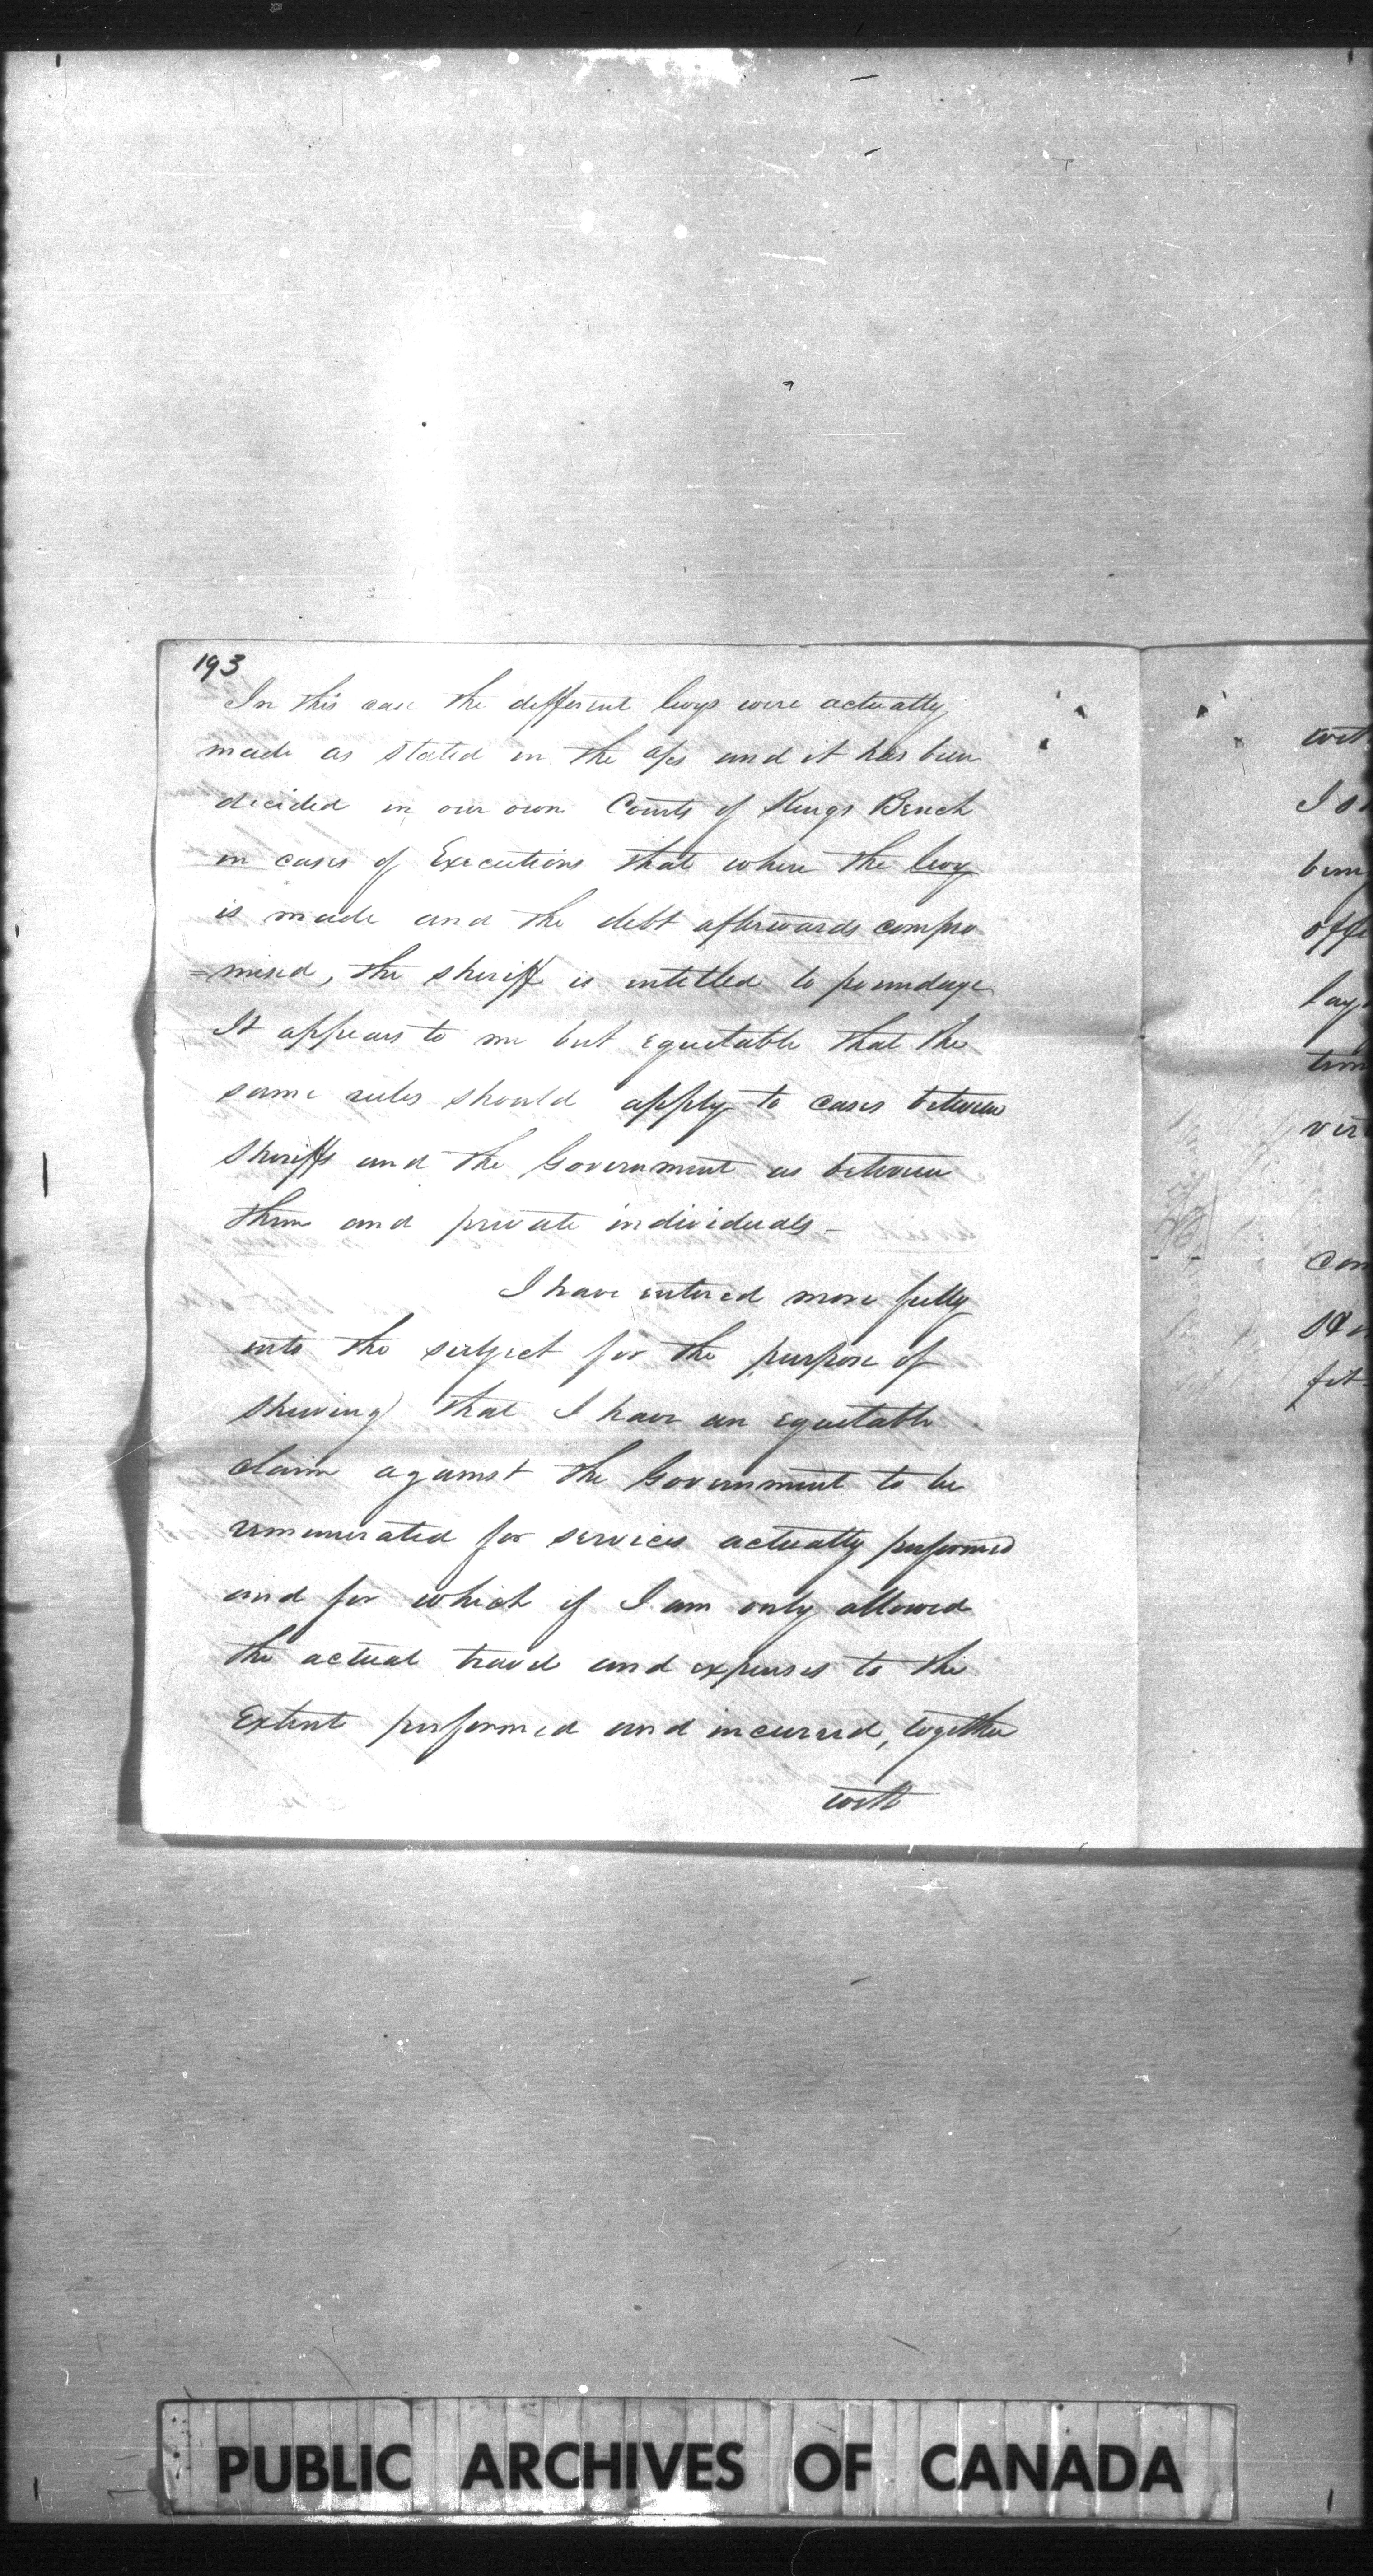 193
In this case the different levys were actually
made as stated in the a/cs and it has been
decided in our own Courts of Kings Bench
in cases of Executions that where the levy
is made and the debt afterwards compro
=mised, the sheriff is intitled to poundage
It appears to me but equitable that the
same rules should apply to cases between
Sheriffs and the Government as between
them and private individuals-
I have entered more fully
into the subject for the purpose of
shewing that I have an equitable
claim against the Government to be
remunerated for services actually performed
and for which if I am only allowed
the actual travel and expenses to the
Extent performed and incurred, together
with
PUBLIC ARCHIVES OF CANADA